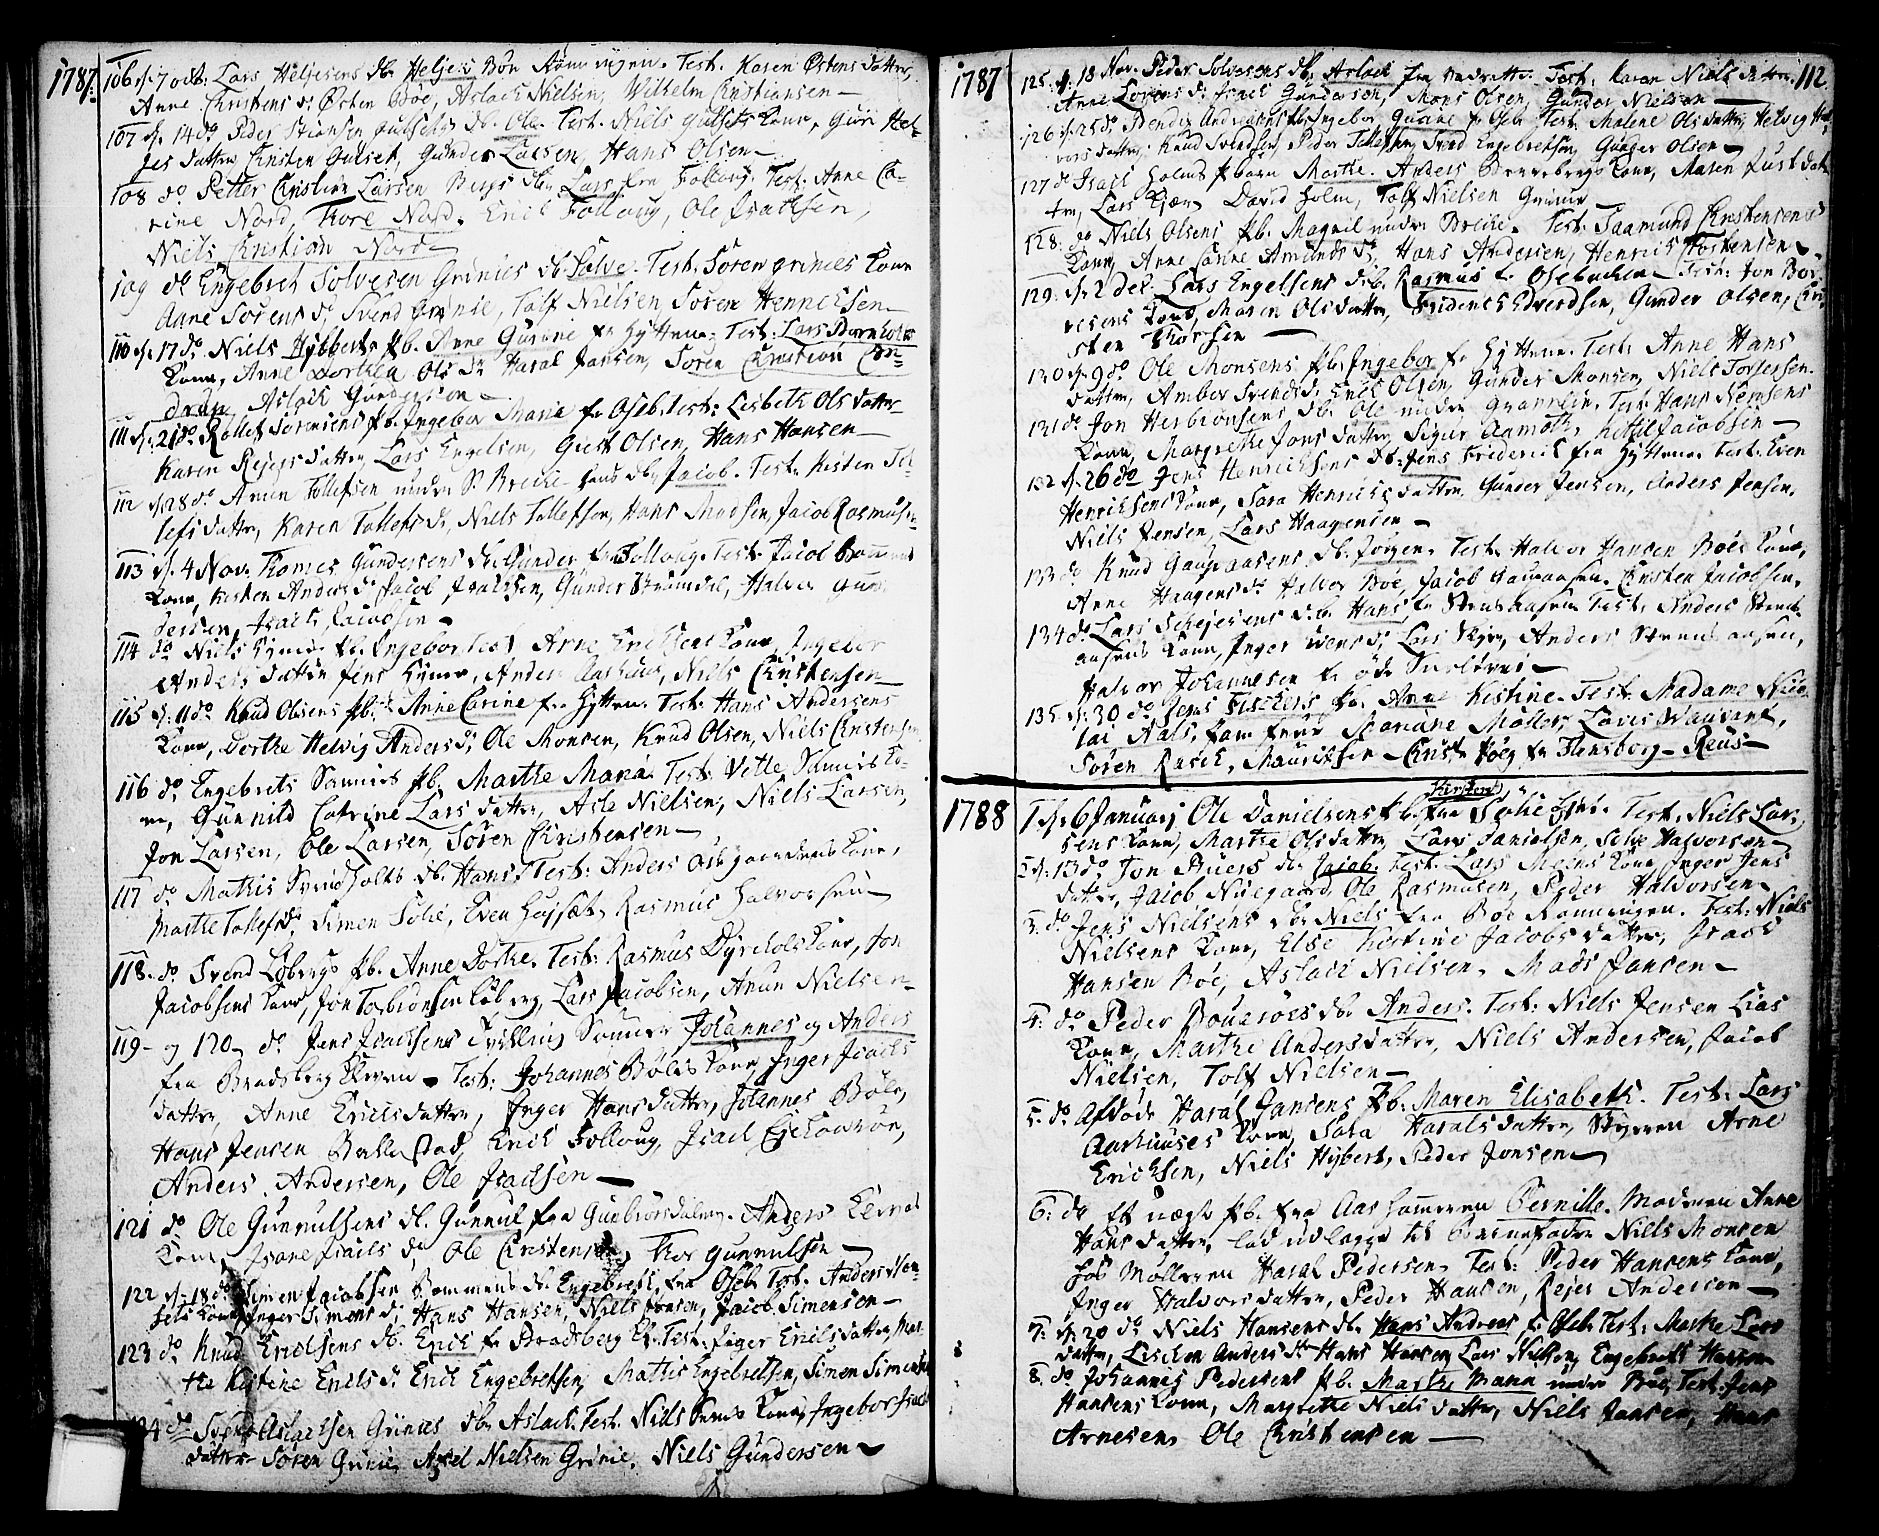 1787.
106 d. 7 octb: Lars Heljesens db. Heljes Böe Rönningen. Test. Karen Østens datter,
Anne Christens d: Østen Böe, Aslach Nielsen, Wilhelm Christiansen —
107 d. 14 do Peder Stiansen Gulsets db. Ole. Test. Niels Gulsets Kone, Guri Hel-
jes datter, Christen Gulset, Gunder Larsen, Hans Olsen —
108 do Petter Christian Larsen Bergs db. Lars fra Follaug. Test. Anne Ca-
rine Nord, Thore Nord, Erich Follaug, Ole Isachsen,
Niels Christian Nord —
109 do Engebret Solvesen Grinies db. Solve. Test. Sören Grinies Kone
Anne Sörens d: Svend Grinie, Tolf Nielsen Sören Henrichsen —
110 d. 17 do Niels Hybberts pb. Anne Gurine fr Hyttene. Test. Lars Bornholts
Kone, Anne Dorthea Ols dr Haral Jansen, Sören Christian Con-
drup, Aslach Gundersen —
111 d. 21 do Rollef Sörensens pb. Ingebor Marie fr Oseb. Test: Lisbeth Ols datter
Karen Rejers datter, Lars Engelsen, Giest Olsen, Hans Hansen —
112 d. 28 do Anun Tollefsen under S. Breche hans db. Jacob. Test. Kisten Tol-
lefs datter, Karen Tollefs d:, Niels Tollefsen, Hans Madsen, Jacob Rasmusen
113 d. 4 Nov. Thomes Gundersens db. Gunder fr Follaug. Test. Jacob
Kone, Kisten Anders d: Jacob Isachsen, Gunder Strömdal, Halvor Gun-
dersen, Isach Jacobsen —
114 do Niels Hymers pb. Ingebor. Test Arne Erichsens Kone, Ingebor
Anders datter Jens Hymer, Anders Aashuus, Niels Christensen —
115 d. 11 do Knud Olsens pb. Anne Carine fra Hytten. Test. Hans Andersens
Kone, Dorthe Helvig Anders d: Ole Monsen, Knud Olsen, Niels Christensen
116 do Engebrets Sannies pb. Marthe Maria. Test. Vette Sannies Ko-
ne, Gunnild Catrine Lars datter, Asle Nielsen, Niels Larsen,
Jon Larsen, Ole Larsen, Sören Christensen —
117 do Mathis Svindholts db. Hans. Test: Anders Kone,
Marthe Tollefs d: Simen Solie, Even Hoisæt, Rasmus Halvorsen —
118. do Svend Löbergs pb. Anne Dorthe. Test: Rasmus Dyrcols Kone, Jon
Jacobsens Kone, Jon Torbiönsen Löberg, Lars Jacobsen, Anun Nielsen.
119 — og 120 do Jens Isachsens Tvilling Sönner Johannes og Anders
fra Bradsberg Kleven — Test: Johannes Böles Kone, Inger Isachs
datter, Anne Erichs datter, Inger Hans datter, Johannes Böle,
Hans Jensen Ballestad, Erich Follaug, Isach
Anders Andersen, Ole Isachsen —
121 do Ole Gunnulsens db. Gunnul fra Gunbiörsdalen. Anders
Kone, Isachs d: Ole Christensen, Thor Gunnulsen —
122 d. 18 do Simen Jacobsen Bommens db. Engebrett fra Oseb. Test. Anders
Kone, Inger Simens d: Hans Hansen, Niels Jensen, Jacob Simensen —
123 do Knud Erichsens db. Erich fr Bradsberg Kl. Test. Inger Erichs datter, Mar-
the Kistine Erichs d: Erich Engebretsen, Mathis Engebretsen, Simon Simensen
124 do Aslachsen Grinies db. Aslach. Test. Niels Kone, Ingebor Isachs
datter Sören Grinie, Axel Nielsen Grinie, Niels Gundersen —
1787
112
125. d. 18 Nov. Peder Solvesens db. Aslach fra Test. Karen Niels datter,
Anne Sörens d: Isach Gundersen, Mons Olsen, Gunder Nielsen —
126 d. 25 do Bendix Andreasens pb. Ingebor Gurine fr Oseb. Test. Malene Ols datter, Helvig Hal-
vors datter, Knud Svendsen, Peder Tollefsen, Svend Engebretsen, Gunder Olsen —
127 do Isach Holms pbarn Marthe. Anders Brennebergs Kone, Maren Just dat-
ter, Lars Kjær, David Holm, Tolf Nielsen Grinie —
128. do Niels Olsens pb. Magnil under Breche. Test. Saamund Christensens
Kone, Anne Carine Amunds d:, Hans Andersen, Henrich Torstensen —
129. d. 2 Dec. Lars Engelsens db. Rasmus fr Osebachen — Test: Jon Bor-
resens Kone, Maren Ols datter, Friderich Edvardsen, Gunder Olsen, Chri-
sten Thorsen —
130 d. 9 do Ole Monsens pb. Ingebor fr Hyttene. Test. Anne Hans
datter, Amber Svends d: Erich Olsen, Gunder Monsen, Niels Torgersen.
131 do Jon Herbiönsens db. Ole under Graanlin. Test. Hans
Kone, Margrethe Jons datter Sigur Aamoth, Kittil Jacobsen —
132 d. 26 do Jens Henrichsens db: Jens Friderich fra Hyttene. Test. Even
Henrichsens Kone, Sara Henrichs datter, Gunder Jensen, Anders Jensen,
Niels Jensen, Lars Haagensen —
133 do Knud Gaupaasens db. Jörgen. Test. Halvor Hansen Böes Kone,
Anne Haagens d: Halvor Böe, Jacob Gaupaasen, Christen Jacobsen.
134 do Lars db. Hans fr Test. Anders
Kone, Inger d: Lars Anders
Halvor Johannesen fr öde —
135 d. 30 do Jens Fischers pb. Anne Kistine. Test. Madame Nico-
lai Aals, Jomfrue Mariane Möller, Lars
Sören Rasch, Mauritsen — Christ. Höeg fr Flensborg — Reus —
1788
1 d. 6 Januarj Ole Danielsens pb. Kirsten fra Solie Eje. Test. Niels Lar-
sens Kone, Marthe Ols datter, Lars Danielsen, Halvorsen —
2 d. 13 do Jon Ruers db. Jacob. Test. Lars Kone, Inger Jens
datter, Jacob Nuegaard, Ole Rasmusen, Peder Halvorsen —
3. do Jens Nielsens db. Niels fra Böe Rönningen. Test: Niels
Nielsens Kone, Else Kistine Jacobs datter, Isach
Hansen Böe, Aslach Nielsen, Mads Jansen —
4. do Peder Bouerøes db. Anders. Test. Niels Jensen Lias
Kone, Marthe Anders datter, Niels Andersen, Jacob
Nielsen, Tolf Nielsen —
5. do Afdöde Haral Jansens pb. Maren Elisabeth. Test: Lars
Aarhuuses Kone, Sara Harals datter, Arne
Erichsen, Niels Hybert, Peder Jonsen —
6. do Et uægte pb. fra Aashammeren Pernille. Moderen Anne
Hans datter, lod udlægge til barnefader Niels Monsen
hos Mölleren Haral Pedersen. Test: Peder Hansens Kone,
Inger Halvors datter, Peder Hansen, Rejer Andersen —
7. d. 20 do Niels Hansens db. Hans Andreas, fr Oseb. Test: Marthe Lars
datter, Lischen Anders d: Hans Hansen, Lars Nielsen, Engebret Hansen
8. do Johannis Pedersens pb. Marthe Maria under Böe, Test: Jens
Hansens Kone, Margrethe Niels datter, Niels Jansen, Hans
Arnesen, Ole Christensen —